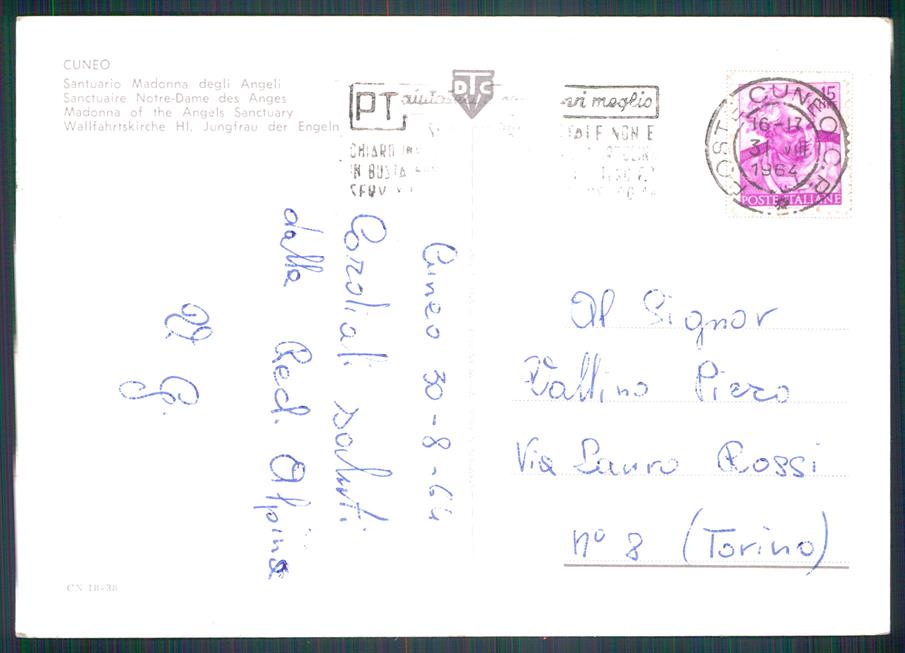 CUNEO
Santuario Madonna degli Angeli
Sanctuaire Notre-Dame des Anges
Madonna of the Angels Sanctuary
Wallfahrtskirche Hl. Jungfrau der Engeln
DTC
PT
vi meglio
CHIARO
IN BUSTA
NON E
15
POSTE CUNEO C.P.
16-17
31 VIII
1964
POSTE ITALIANE
Cuneo 30-8-64
Cordiali saluti
dalla Red. Alpina
Al Signor
Piero
Via Lauro Rossi
n° 8 (Torino)
CN 18-38